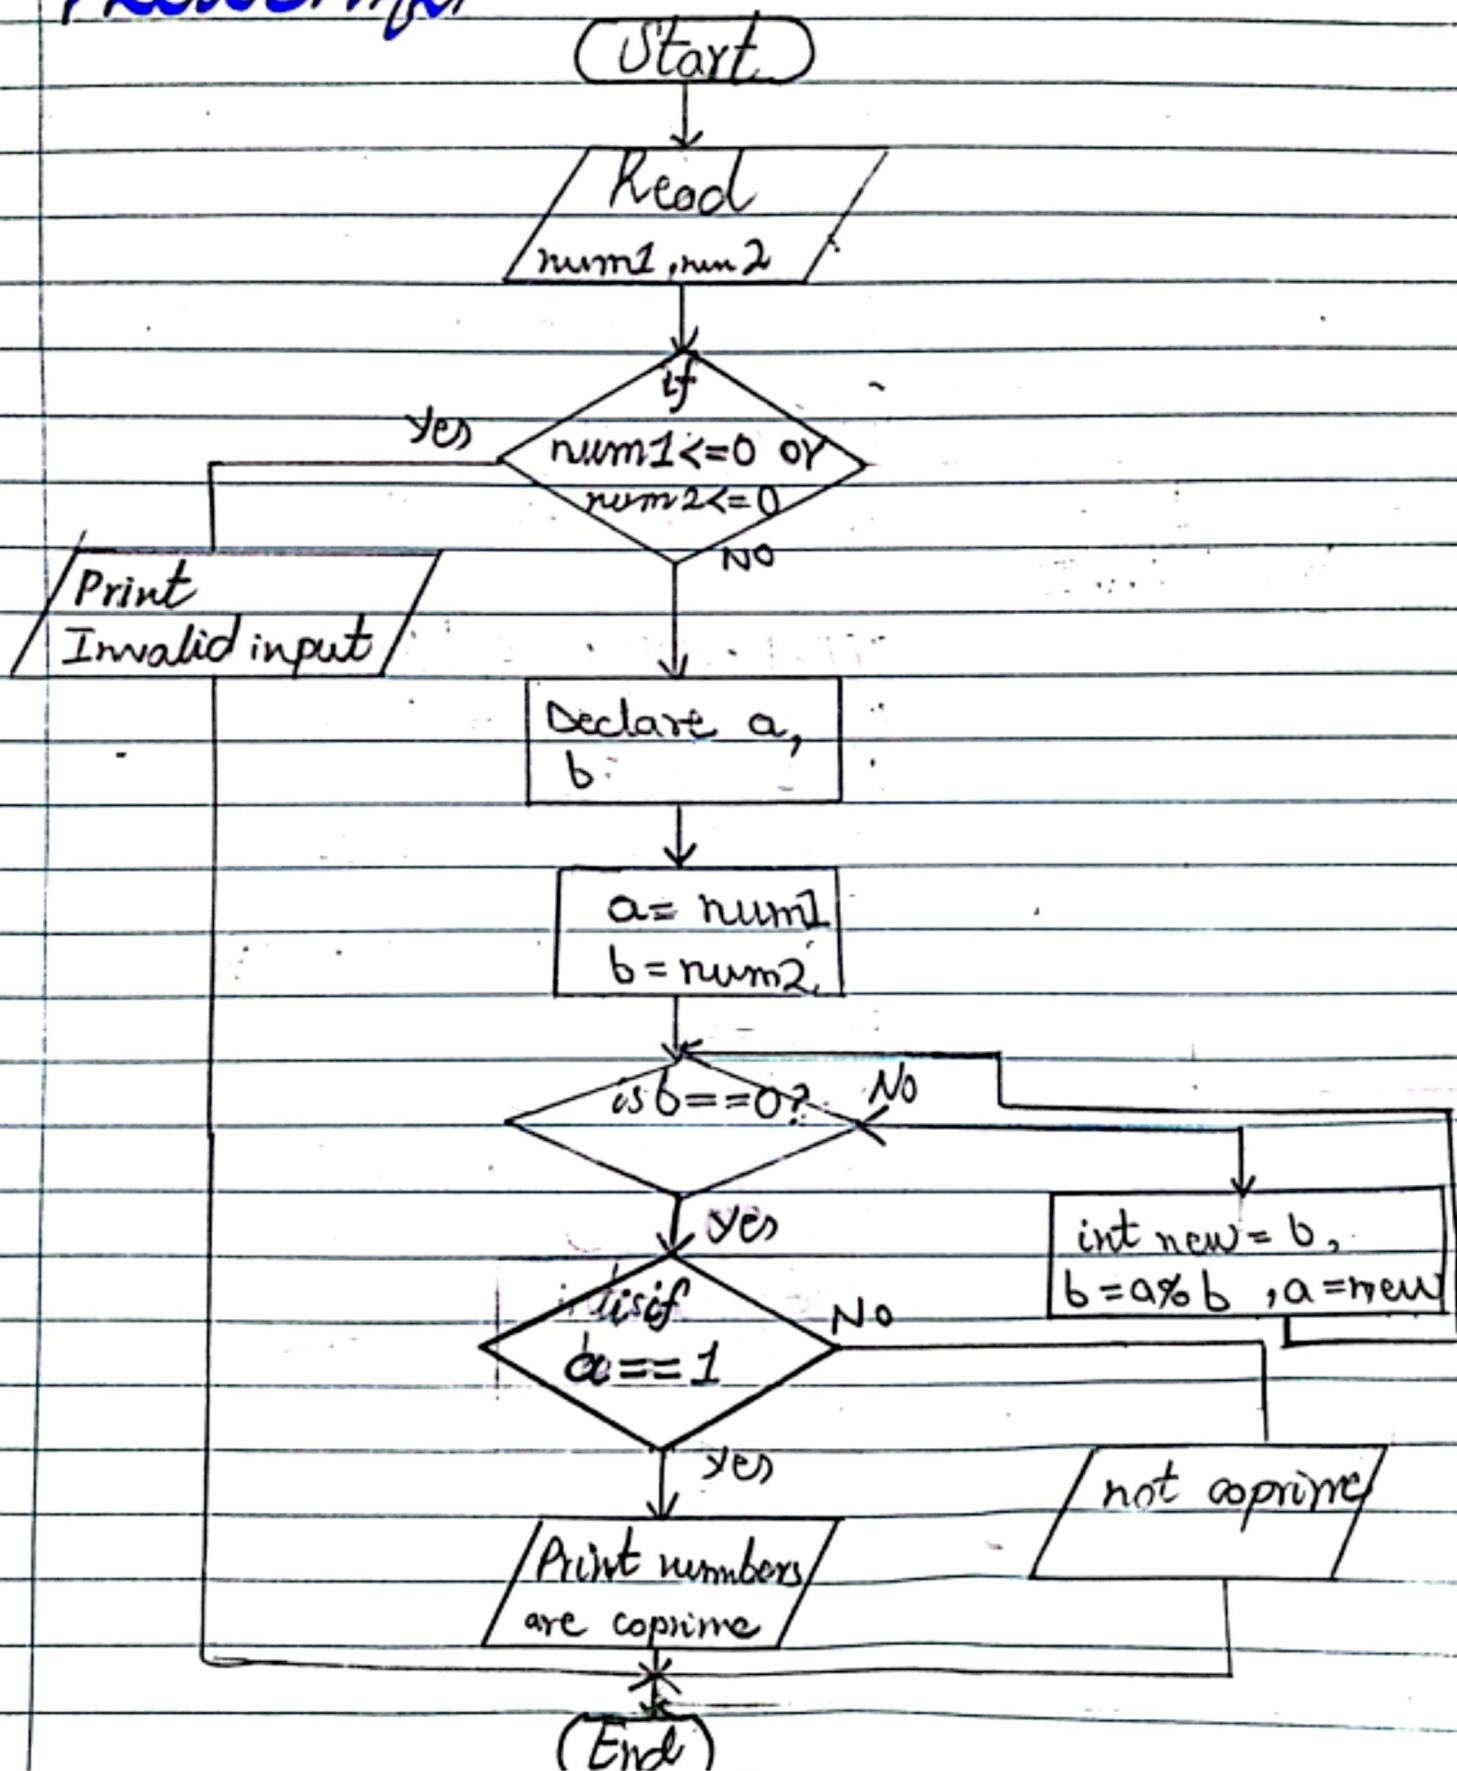 Start
Read
num1, num2
if
num1<=0 or
num2<=0
Yes
NO
Print
Invalid input
Declare a,
b
a= num1
b=num2
is b==0?
No
Yes
int new= b,
b=a%b ,a=new
if
a==1
No
Yes
not coprime
Print numbers
are coprime
End